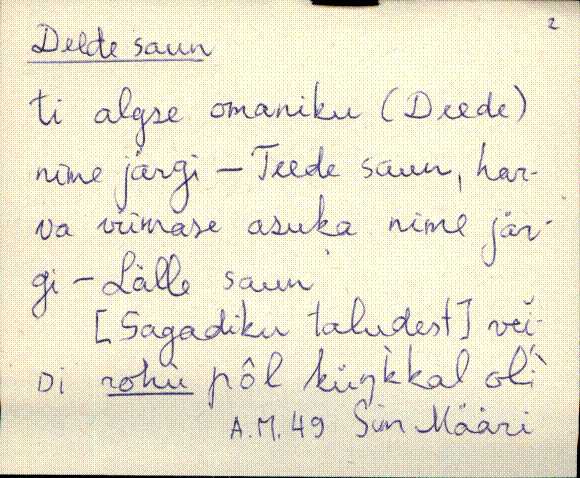 2
Deede saun
ti algse omaniku (Deede)
nime järgi – Teede saun, har-
va viimase asuka nime jär-
gi – Lälle saun
[Sagadiku taludest] vei-
di rohu pôl küŋkkal oli
A.M. 49 Sim Määri